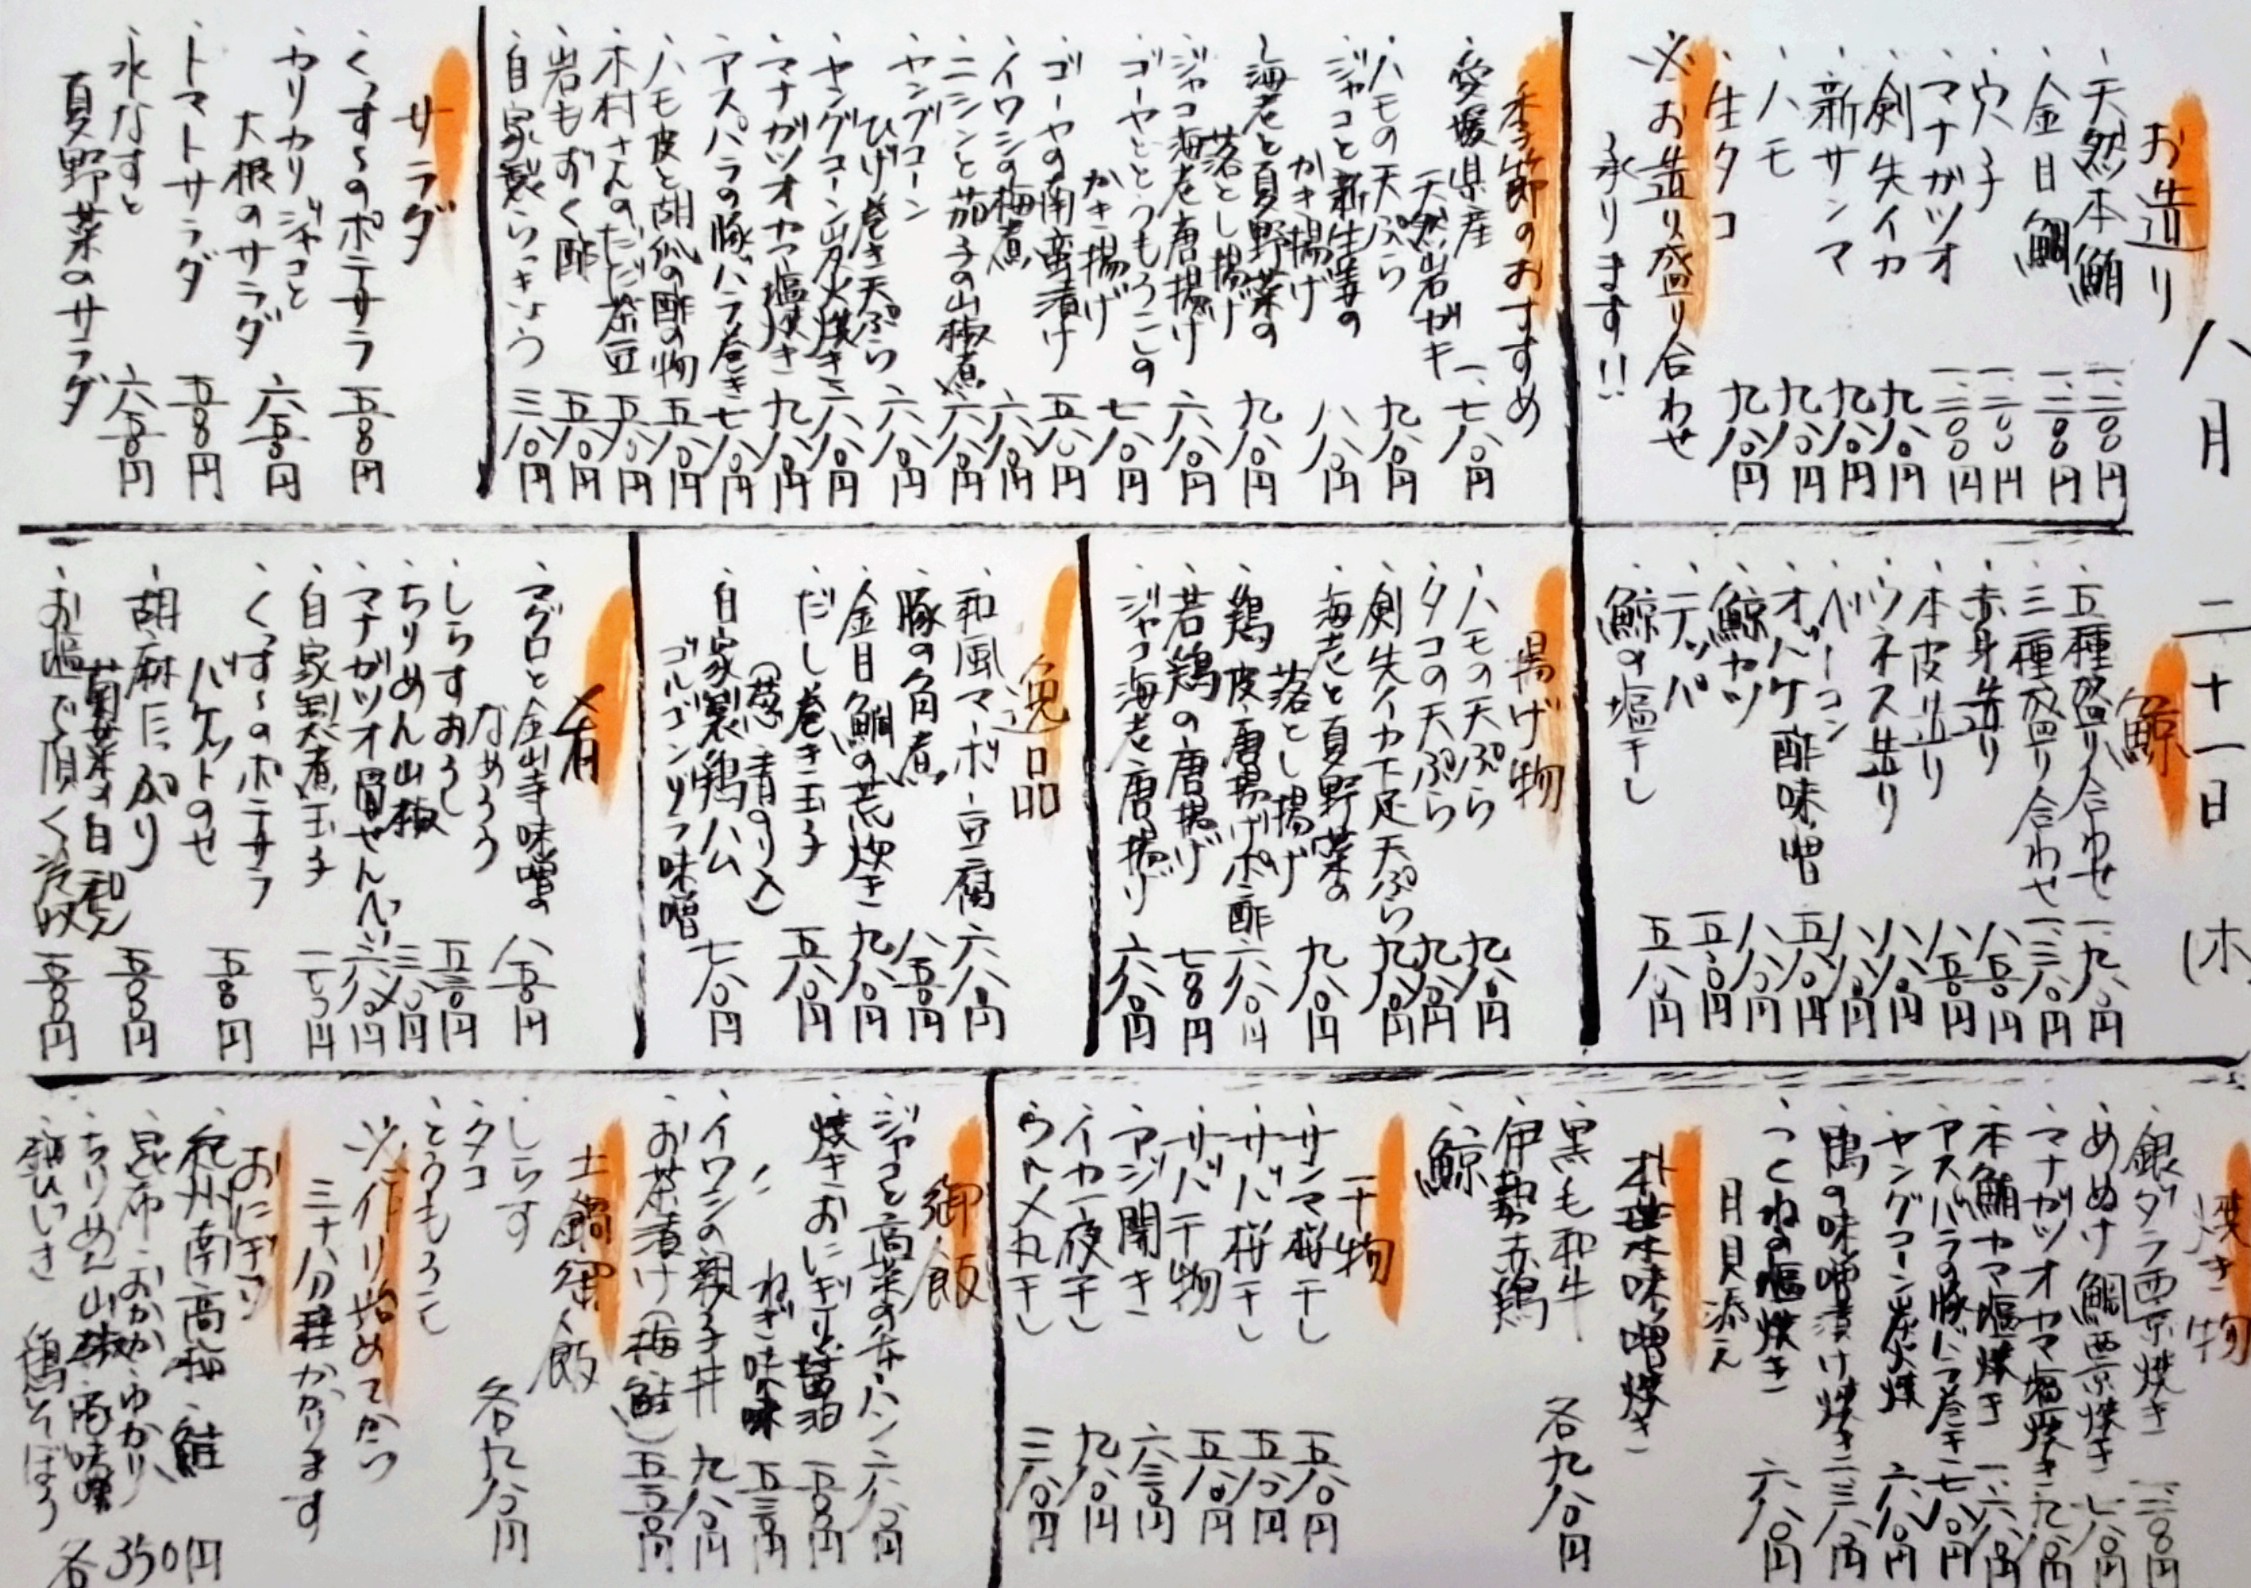 八月二十一日(木
お造り
・天然本鮪 一、二〇〇円
・金目鯛 一、二〇〇円
・穴子 一、二〇〇円
・マナガツオ 一、二〇〇円
・剣先イカ 九八〇円
・新サンマ 九八〇円
・ハモ 九八〇円
・生タコ 九八〇円
※お造り盛り合わせ
承ります!!
季節のおすすめ
・愛媛県産
天然岩ガキ 一、七八〇円
・ハモの天ぷら 九八〇円
・ジャコと新生姜の
かき揚げ 八八〇円
・海老と夏野菜の
落とし揚げ 九八〇円
・ジャコ海老唐揚げ 六八〇円
・ゴーヤととうもろこしの
かき揚げ 七八〇円
・ゴーヤの南蛮漬け 五八〇円
・イワシの梅煮 六八〇円
・ニシンと茄子の山椒煮 六八〇円
・ヤングコーン
ひげ巻き天ぷら 六八〇円
・ヤングコーン炭火焼き 六八〇円
・マナガツオカマ塩焼き 九八〇円
・アスパラの豚バラ巻き 七八〇円
・ハモ皮と胡瓜の酢の物 五八〇円
・木村さんのだだ茶豆 五八〇円
・岩もずく酢 五八〇円
・自家製らっきょう 三八〇円
サラダ
・くっす〜のポテサラ 五八〇円
・カリカリジャコと
大根のサラダ 六八〇円
・トマトサラダ 五八〇円
・水なすと
夏野菜のサラダ 六八〇円
鯨
・五種盛り合わせ 一、九八〇円
・三種盛り合わせ 一、三八〇円
・赤身造り 八五〇円
・本皮造り 八五〇円
・ウネス造り 八八〇円
・ベーコン 八八〇円
・オバケ酢味噌 五八〇円
・鯨カツ 八八〇円
・テッパ 五八〇円
・鯨の塩干し 五八〇円
揚げ物
・ハモの天ぷら 九八〇円
・タコの天ぷら 九八〇円
・剣先イカ下足天ぷら 九八〇円
・海老と夏野菜の
落とし揚げ 九八〇円
・鶏皮唐揚げポン酢 六八〇円
・若鶏の唐揚げ 七八〇円
・ジャコ海老唐揚げ 六八〇円
逸品
・和風マーボー豆腐 六八〇円
・豚の角煮 八五〇円
・金目鯛の荒炊き 九八〇円
・だし巻き玉子
(葱、青のり入) 五八〇円
・自家製鶏ハム
ゴルゴンゾーラ味噌 七八〇円
肴
・マグロと金山寺味噌の
なめろう 八五〇円
・しらすおろし 五三〇円
・ちりめん山椒 三八〇円
・マナガツオ骨せんべい 三八〇円
・自家製煮玉子 一七〇円
・くっす〜のポテサラ
バケットのせ 五八〇円
・胡麻たっぷり
菊菜の白和え 五八〇円
・お塩で頂く冷奴 五八〇円
焼き物
・銀ダラ西京焼き 一、二八〇円
・めぬけ鯛西京焼き 一、一八〇円
・マナガツオカマ塩焼き 九八〇円
・本鮪カマ塩焼き 一、六八〇円
・アスパラの豚バラ巻き 七八〇円
・ヤングコーン炭火焼 六八〇円
・鴨の味噌漬け焼き 一、三八〇円
・つくねの塩焼き 六八〇円
月見添え
朴葉味噌焼き
・黒毛和牛
・伊勢赤鶏
・鯨
各九八〇円
干物
・サンマ桜干し 五八〇円
・サバ桜干し 五八〇円
・サバ干物 五八〇円
・アジ開き 六三〇円
・イカ一夜干し 九八〇円
・ウルメ丸干し 三八〇円
御飯
・ジャコと高菜のチャーハン 六八〇円
・焼きおにぎり 醤油 五〇〇円
・〃 ねぎ味味 五三〇円
・イワシの親子丼 九八〇円
・お茶漬け(梅、鮭) 五五〇円
土鍋御飯
・しらす
・タコ
・とうもろこし
各九八〇円
※作り始めてから
三十八分程かかります
おにぎり
・紀州南高梅・鮭
・昆布・おかか・ゆかり
・ちりめん山椒・豚味噌
・鶏そぼろ
各350円